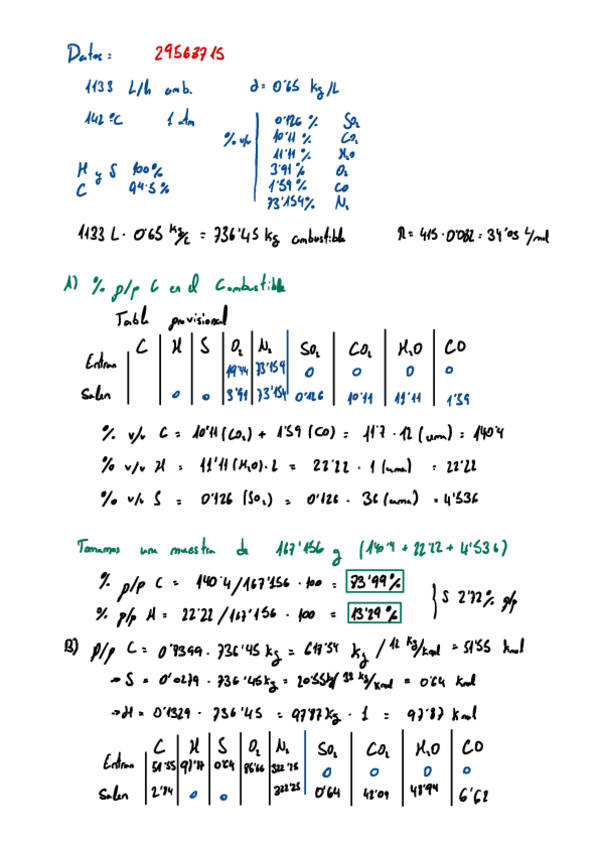 Datos: 29563715
1133 L/h comb. d = 0'65 kg/L
142 ºC 1 atm
% v/v
0'126 % SO₂
10'11 % CO₂
11'11 % H₂O
3'91 % O₂
1'59 % CO
73'154 % N₂
H y S 100%
C 94'5 %
1133 L · 0'65 kg/L = 736'45 kg combustible R = 415 · 0'082 = 34'03 L/mol
A) % p/p C en el Combustible
Tabla provisional
C H S O₂ N₂ SO₂ CO₂ H₂O CO
Entran 19'44 73'154 0 0 0 0
Salen 0 0 3'91 73'154 0'126 10'11 11'11 1'59
% v/v C = 10'11 (CO₂) + 1'59 (CO) = 11'7 · 12 (uma) = 140'4
% v/v H = 11'11 (H₂O) · 2 = 22'22 · 1 (uma) = 22'22
% v/v S = 0'126 (SO₂) = 0'126 · 36 (uma) = 4'536
Tomamos una muestra de 167'156 g (140'4 + 22'22 + 4'536)
% p/p C = 140'4/167'156 · 100 = 83'99%
% p/p H = 22'22/167'156 · 100 = 13'29%
} S 2'72% p/p
B) p/p C = 0'8399 · 736'45 kg = 618'54 kg / 12 kg/kmol = 51'55 kmol
→ S = 0'0279 · 736'45 kg = 20'55 kg / 32 kg/kmol = 0'64 kmol
→ H = 0'1329 · 736'45 = 97'87 kg · 1 = 97'87 kmol
C H S O₂ N₂ SO₂ CO₂ H₂O CO
Entran 51'55 97'87 0'64 322'25 0 0 0 0
Salen 2'84 0 0 322'25 0'64 42'09 48'94 6'62